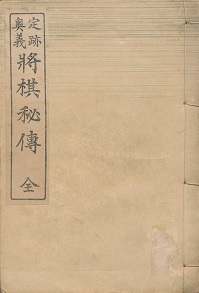 定跡
奥義
將棋秘傳
全